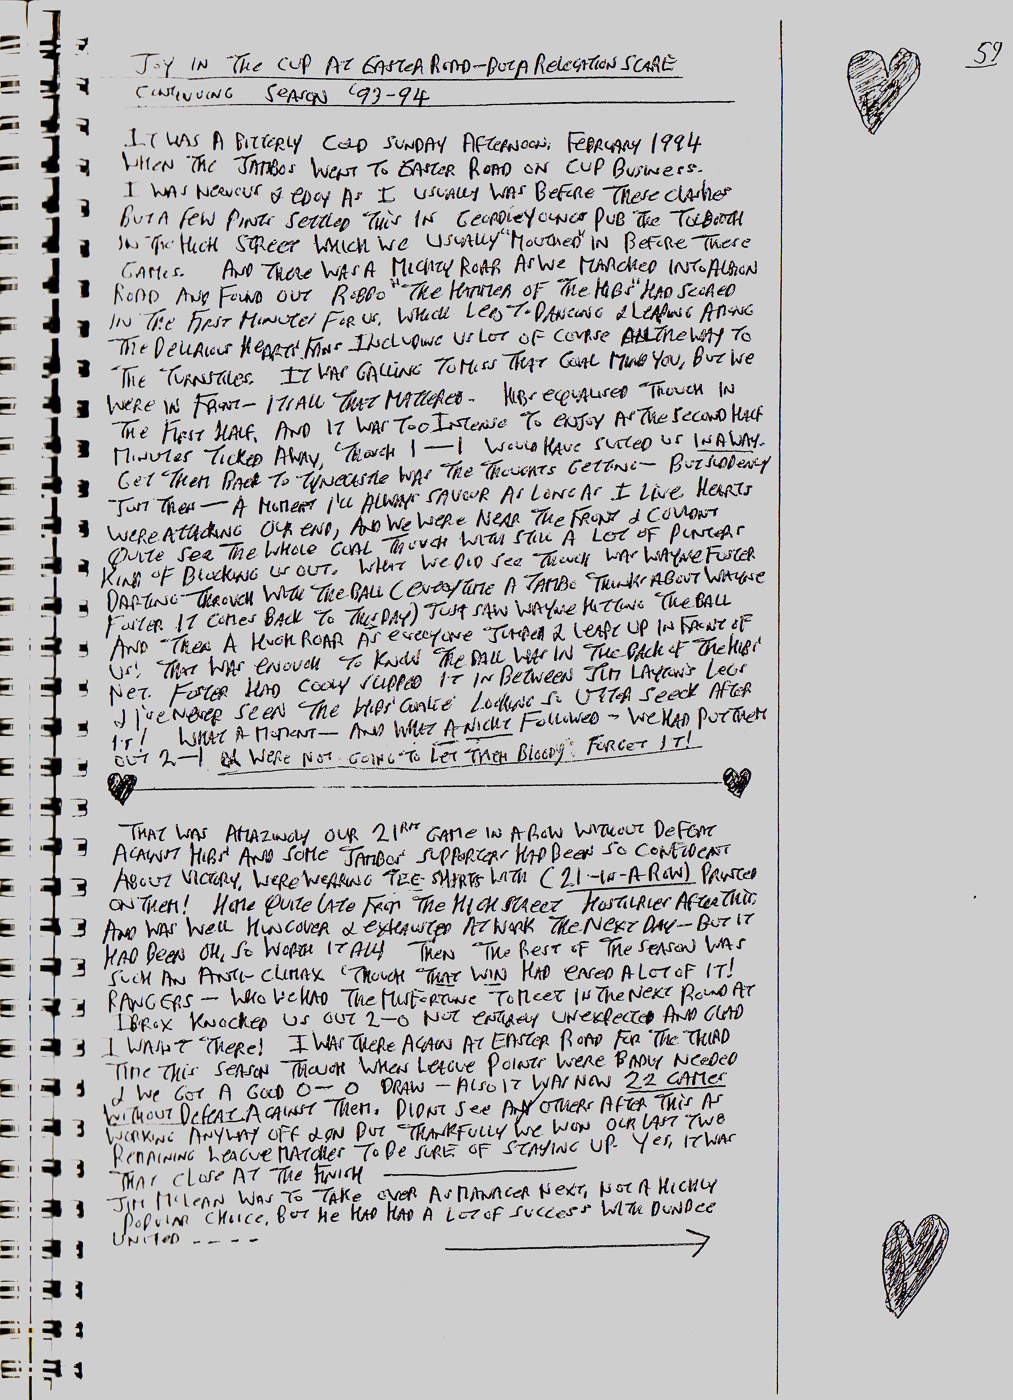 59
JOY IN THE CUP AT EASTER ROAD - BUT A RELEGATION SCARE
CONTINUING SEASON '93-94
IT WAS A BITTERLY COLD SUNDAY AFTERNOON, FEBRUARY 1994
WHEN THE JAMBOS WENT TO EASTER ROAD ON CUP BUSINESS.
I WAS NERVOUS & EDGY AS I USUALLY WAS BEFORE THESE CLASHES
BUT A FEW PINTS SETTLED THIS IN GEORDIE YOUNGS PUB THE TOLBOOTH
IN THE HIGH STREET WHICH WE USUALLY "MOUTHED" IN BEFORE THESE
GAMES. AND THERE WAS A MIGHTY ROAR AS WE MARCHED INTO ALBION
ROAD AND FOUND OUT ROBBO "THE HAMMER OF THE HIBS" HAD SCORED
IN THE FIRST MINUTES FOR US, WHICH LED TO DANCING & LEAPING AMONG
THE DELIRIOUS HEARTS' FANS INCLUDING US LOT OF COURSE ALL THE WAY TO
THE TURNSTILES. IT WAS GALLING TO MISS THAT GOAL MIND YOU, BUT WE
WERE IN FRONT - ITS ALL THAT MATTERED. HIBS EQUALISED THOUGH IN
THE FIRST HALF, AND IT WAS TOO INTENSE TO ENJOY AS THE SECOND HALF
MINUTES TICKED AWAY, THOUGH 1-1 WOULD HAVE SUITED US IN A WAY.
GET THEM BACK TO TYNECASTLE WAS THE THOUGHTS GETTING - BUT SUDDENLY
JUST THEN - A MOMENT I'LL ALWAYS SAVOUR AS LONG AS I LIVE, HEARTS
WERE ATTACKING OUR END, AND WE WERE NEAR THE FRONT & COULDNT
QUITE SEE THE WHOLE GOAL THOUGH WITH STILL A LOT OF PUNTERS
KIND OF BLOCKING US OUT. WHAT WE DID SEE THOUGH WAS WAYNE FOSTER
DARTING THROUGH WITH THE BALL (EVERYTIME A JAMBO THINKS ABOUT WAYNE
FOSTER IT COMES BACK TO THIS DAY) JUST SAW WAYNE HITTING THE BALL
AND THEN A HUGH ROAR AS EVERYONE JUMPED & LEAPT UP IN FRONT OF
US! THAT WAS ENOUGH TO KNOW THE BALL WAS IN THE BACK OF THE HIBS'
NET. FOSTER HAD COOLY SLIPPED IT IN BETWEEN JIM LAYTONS LEGS
& I'VE NEVER SEEN THE HIBS' GOALIE LOOKING SO UTTER SEECK AFTER
IT! WHAT A MOMENT - AND WHAT A NIGHT FOLLOWED - WE HAD PUT THEM
OUT 2-1 & WERE NOT GOING TO LET THEM BLOODY FORGET IT!
THAT WAS AMAZINGLY OUR 21ST GAME IN A ROW WITHOUT DEFEAT
AGAINST HIBS' AND SOME JAMBOS' SUPPORTERS HAD BEEN SO CONFIDENT
ABOUT VICTORY, WERE WEARING TEE-SHIRTS WITH (21-IN-A-ROW) PRINTED
ON THEM! HOME QUITE LATE FROM THE HIGH STREET HOSTILRIES AFTER THIS,
AND WAS WELL HUNGOVER & EXHAUSTED AT WORK THE NEXT DAY - BUT IT
HAD BEEN OH, SO WORTH IT ALL! THEN THE REST OF THE SEASON WAS
SUCH AN ANTI-CLIMAX THOUGH THAT WIN HAD EASED A LOT OF IT!
RANGERS - WHO WE HAD THE MISFORTUNE TO MEET IN THE NEXT ROUND AT
IBROX KNOCKED US OUT 2-0 NOT ENTIRELY UNEXPECTED AND GLAD
I WASN'T THERE! I WAS THERE AGAIN AT EASTER ROAD FOR THE THIRD
TIME THIS SEASON THOUGH WHEN LEAGUE POINTS WERE BADLY NEEDED
& WE GOT A GOOD 0-0 DRAW - ALSO IT WAS NOW 22 GAMES
WITHOUT DEFEAT AGAINST THEM. DIDNT SEE ANY OTHERS AFTER THIS AS
WORKING ANYWAY OFF & ON BUT THANKFULLY WE WON OUR LAST TWO
REMAINING LEAGUE MATCHES TO BE SURE OF STAYING UP. YES, IT WAS
THAT CLOSE AT THE FINISH
JIM McLEAN WAS TO TAKE OVER AS MANAGER NEXT, NOT A HIGHLY
POPULAR CHOICE, BUT HE HAD HAD A LOT OF SUCCESS WITH DUNDEE
UNITED ----